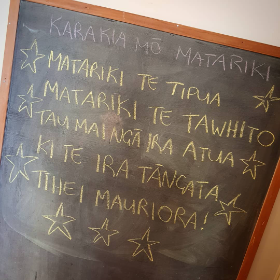 KARAKIA MŌ MATARIKI
MATARIKI TE TIPUA
MATARIKI TE TAWHITO
TAU MAI NGĀ IRA ATUA
KI TE IRA TĀNGATA
TIHEI MAURIORA!